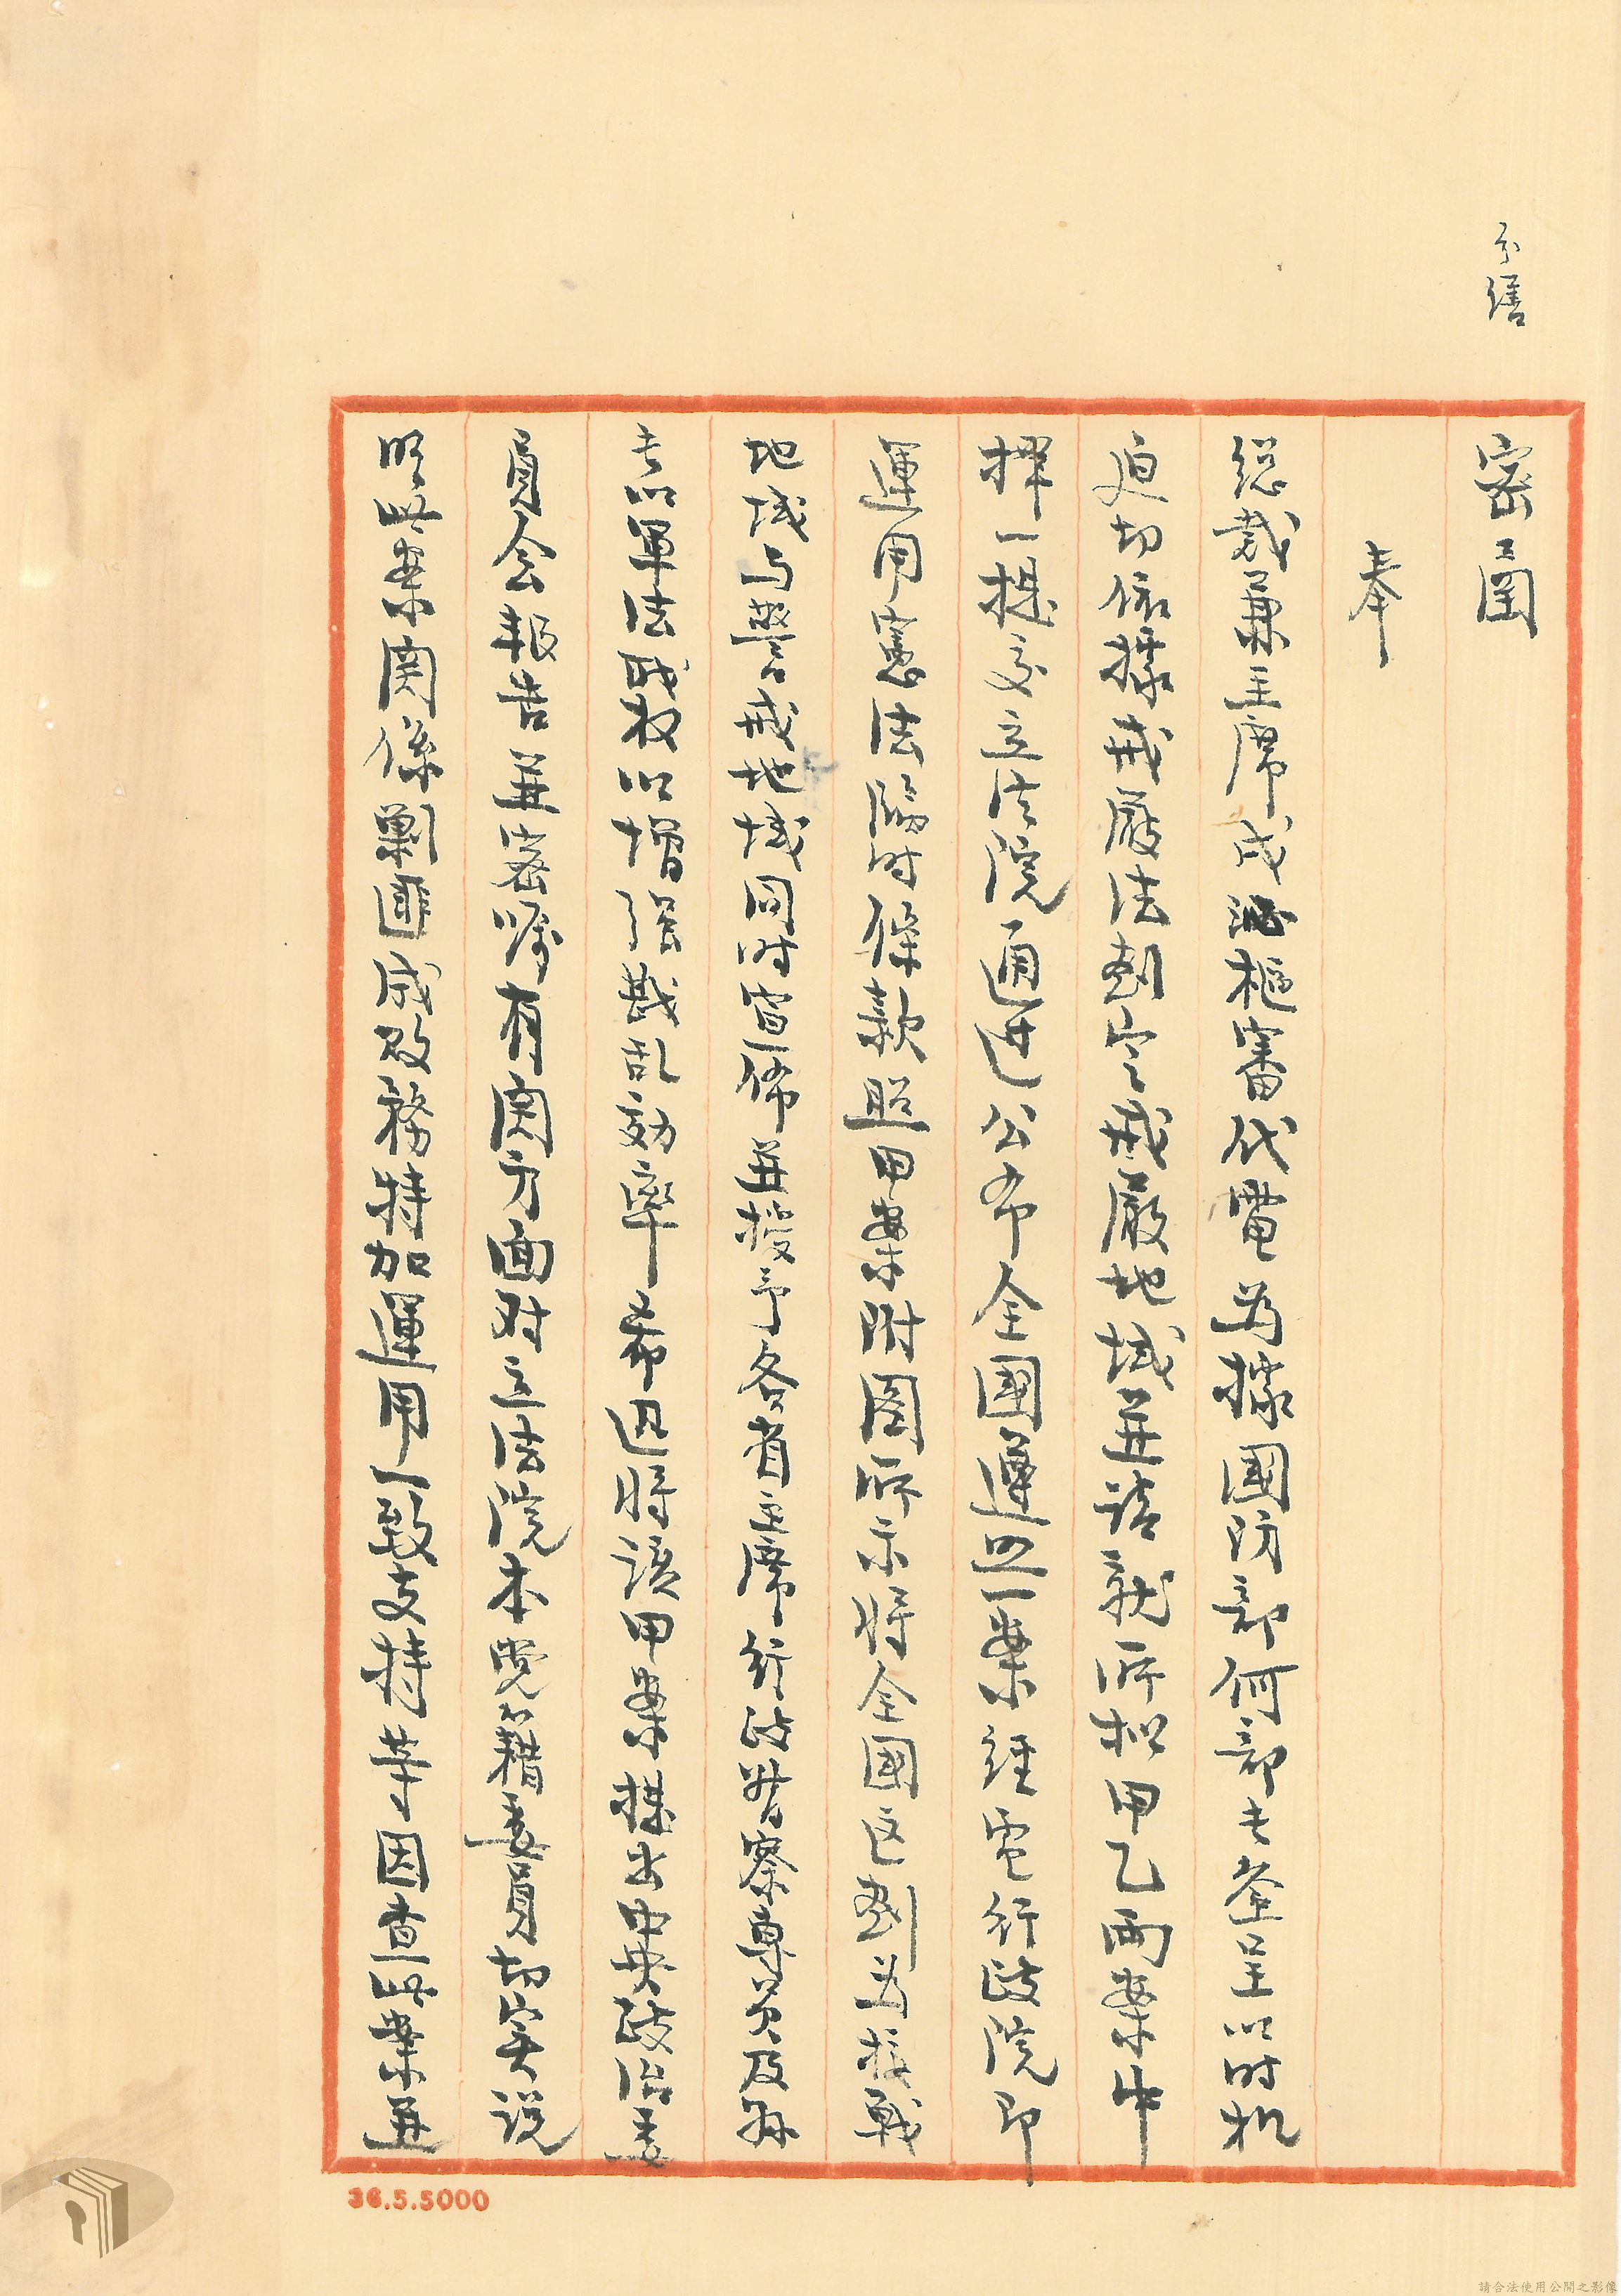 不繕
密函
奉
總裁兼主席戌 樞審代電為據國防部何部長簽呈以時機
迫切依據戒嚴法劃定戒嚴地域并請就所擬甲乙兩案中
擇一提交立法院通過公布全國通 一案經電行政院即
運用憲法臨時條款照甲案附圖所示將全國區劃為接戰
地域與警戒地域同時宣佈并授予各省主席行政督察專員及縣
長以軍法職權以增強戡亂効率希迅將該甲案提出中央政治委
員會報告并密囑有關方面對立法院本黨籍委員切實說
明此案關係剿匪成敗務特加運用一致支持等因查此案遵
36.5.5000
請合法使用公開之影像